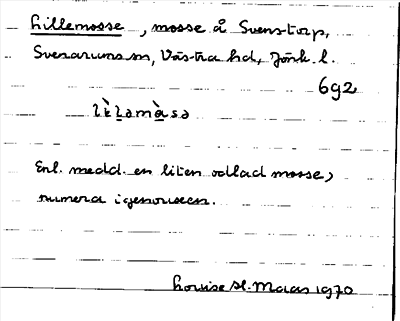 Lillemosse, mosse å Svenstorp,
Svenarums sn, Västra hd, Jönk. l.
6g2
lìlamàsa
Enl. medd. en liten odlad mosse,
numera igenvuxen.
Louise Maas 1970